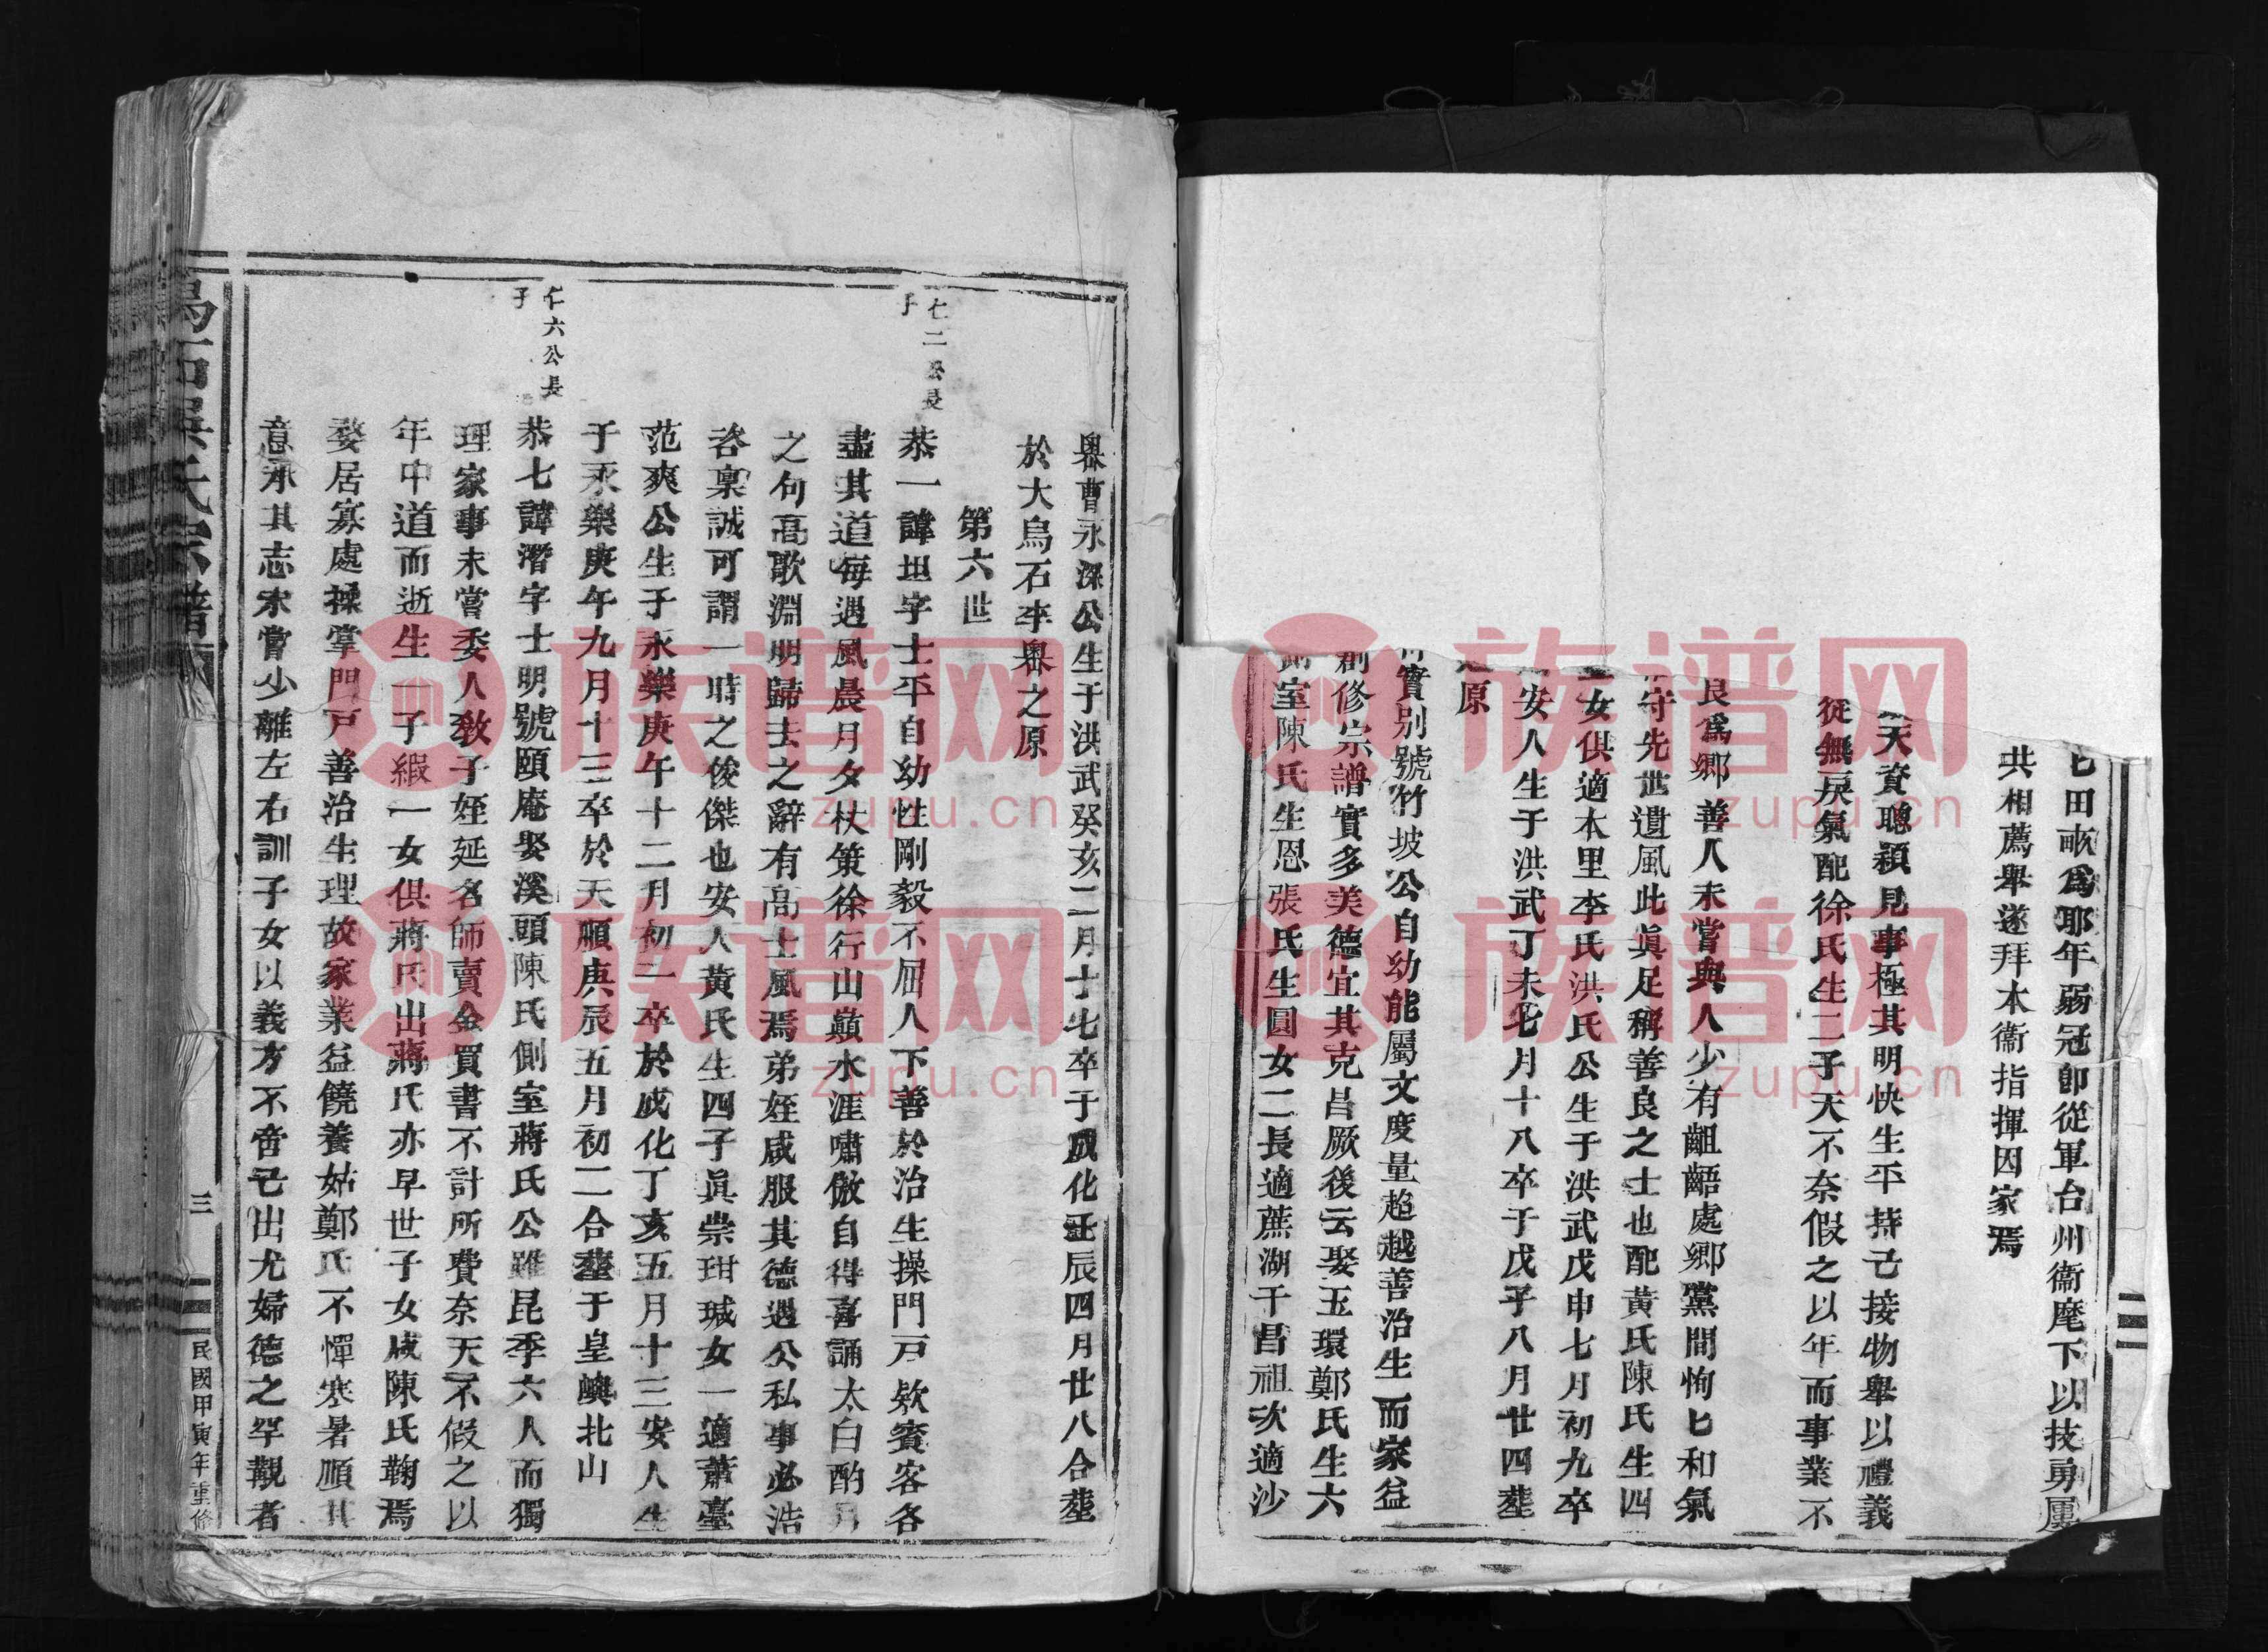 田畝爲耶年弱冠卽從軍台州衞麾下以技勇屢
共相薦舉遂拜本衞指揮因家焉
天資聰穎見事極其明快生平持己接物舉以禮義
從無戾氣配徐氏生二子天不奈假之以年而事業不
良爲鄉善人未嘗與人少有齟齬處鄉黨間恂匕和氣
守先世遺風此眞足稱善良之士也配黃氏陳氏生四
女俱適本里李氏洪氏公生于洪武戊申七月初九卒
安人生于洪武丁未七月十八卒于戊子八月廿四塟
原
實别號竹坡公自幼能屬文度量超越善治生而家益
創修宗譜實多美德宜其克昌厥後云娶玉環鄭氏生六
室陳氏生恩張氏生圓女二長適蔗湖干昌祖次適沙
嶴曹氶深公生于洪武癸亥二月十七卒于成化壬辰四月廿八合塟
於大烏石李嶴之原
第六世
仁二公長子
恭一諱坦字士平自幼性剛毅不屈人下善於治生操門戸欵賓客各
盡其道每遇風晨月夕杖策徐行山巔水涯嘯傲自得喜誦太白酌月
之句高歌淵明歸去之辭有高士風焉弟姪咸服其德遇公私事必浩
咨稟誠可謂一時之俊傑也安人黃氏生四子眞崇玵瑊女一適蕭臺
范爽公生于永樂庚午十二月初二卒於成化丁亥五月十三安人生
于永樂庚午九月十三卒於天順庚辰五月初二合塟于皇嶼北山
仁六公長子
恭七諱潛字士明號頤庵娶溪頭陳氏側室蔣氏公雖昆季六人而獨
理家事未嘗委人教子姪延名師賣金買書不計所費奈天不假之以
年中道而逝生一子緞一女俱蔣氏出蔣氏亦早世子女咸陳氏鞠焉
嫠居寡處操掌門戸善治生理故家業益饒養姑鄭氏不憚寒暑順其
意承其志未嘗少離左右訓子女以義方不啻己出尤婦德之罕覯者
烏石吳氏宗譜
三
民國甲寅年重修
族谱网
zupu.cn
族谱网
zupu.cn
族谱网
zupu.cn
族谱网
zupu.cn